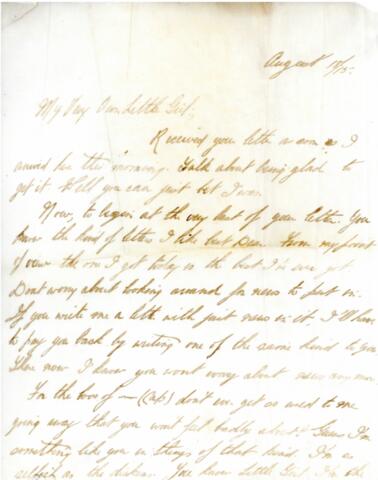 August 18/15.
My Very Own Little Girl,
Received your letter as soon as I
arrived here this morning. Talk about being glad to
get it. Well you can just bet I was.
Now, to begin at the very last of your letter. You
know the kind of letters I like best Dear. From my point
of view the one I got today is the best I've ever got.
Dont worry about looking around for news to put in.
If you write me a letter with just news in it. I'll have
to pay you back by writing one of the same kind to you.
There now I know you wont worry about news any more.
For the love of — don't ever get so used to me
going away that you wont feel badly about it. Guess I'm
something like you in things of that kind. I'm as
selfish as the dickens. You know Little Girl I'm the